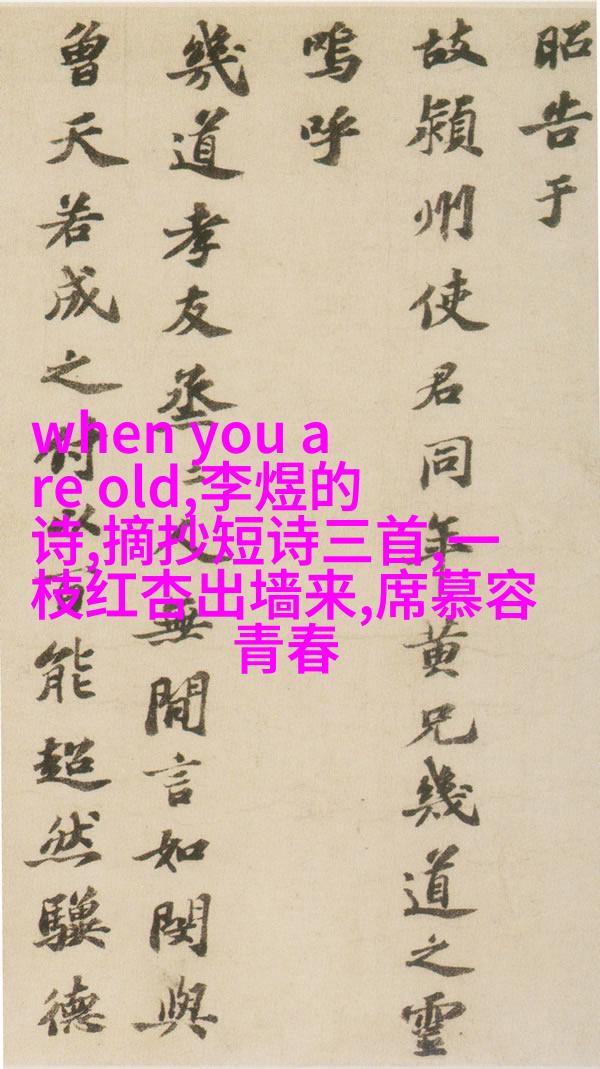 昭告于
故潁州使君同年黃兄幾道之靈
嗚呼
幾道孝友烝〻人無閒言如閔與
曾天若成之付以百能超然驥德
when you a
re old,李煜的
诗,摘抄短诗三首,一
枝红杏出墙来,席慕容
青春